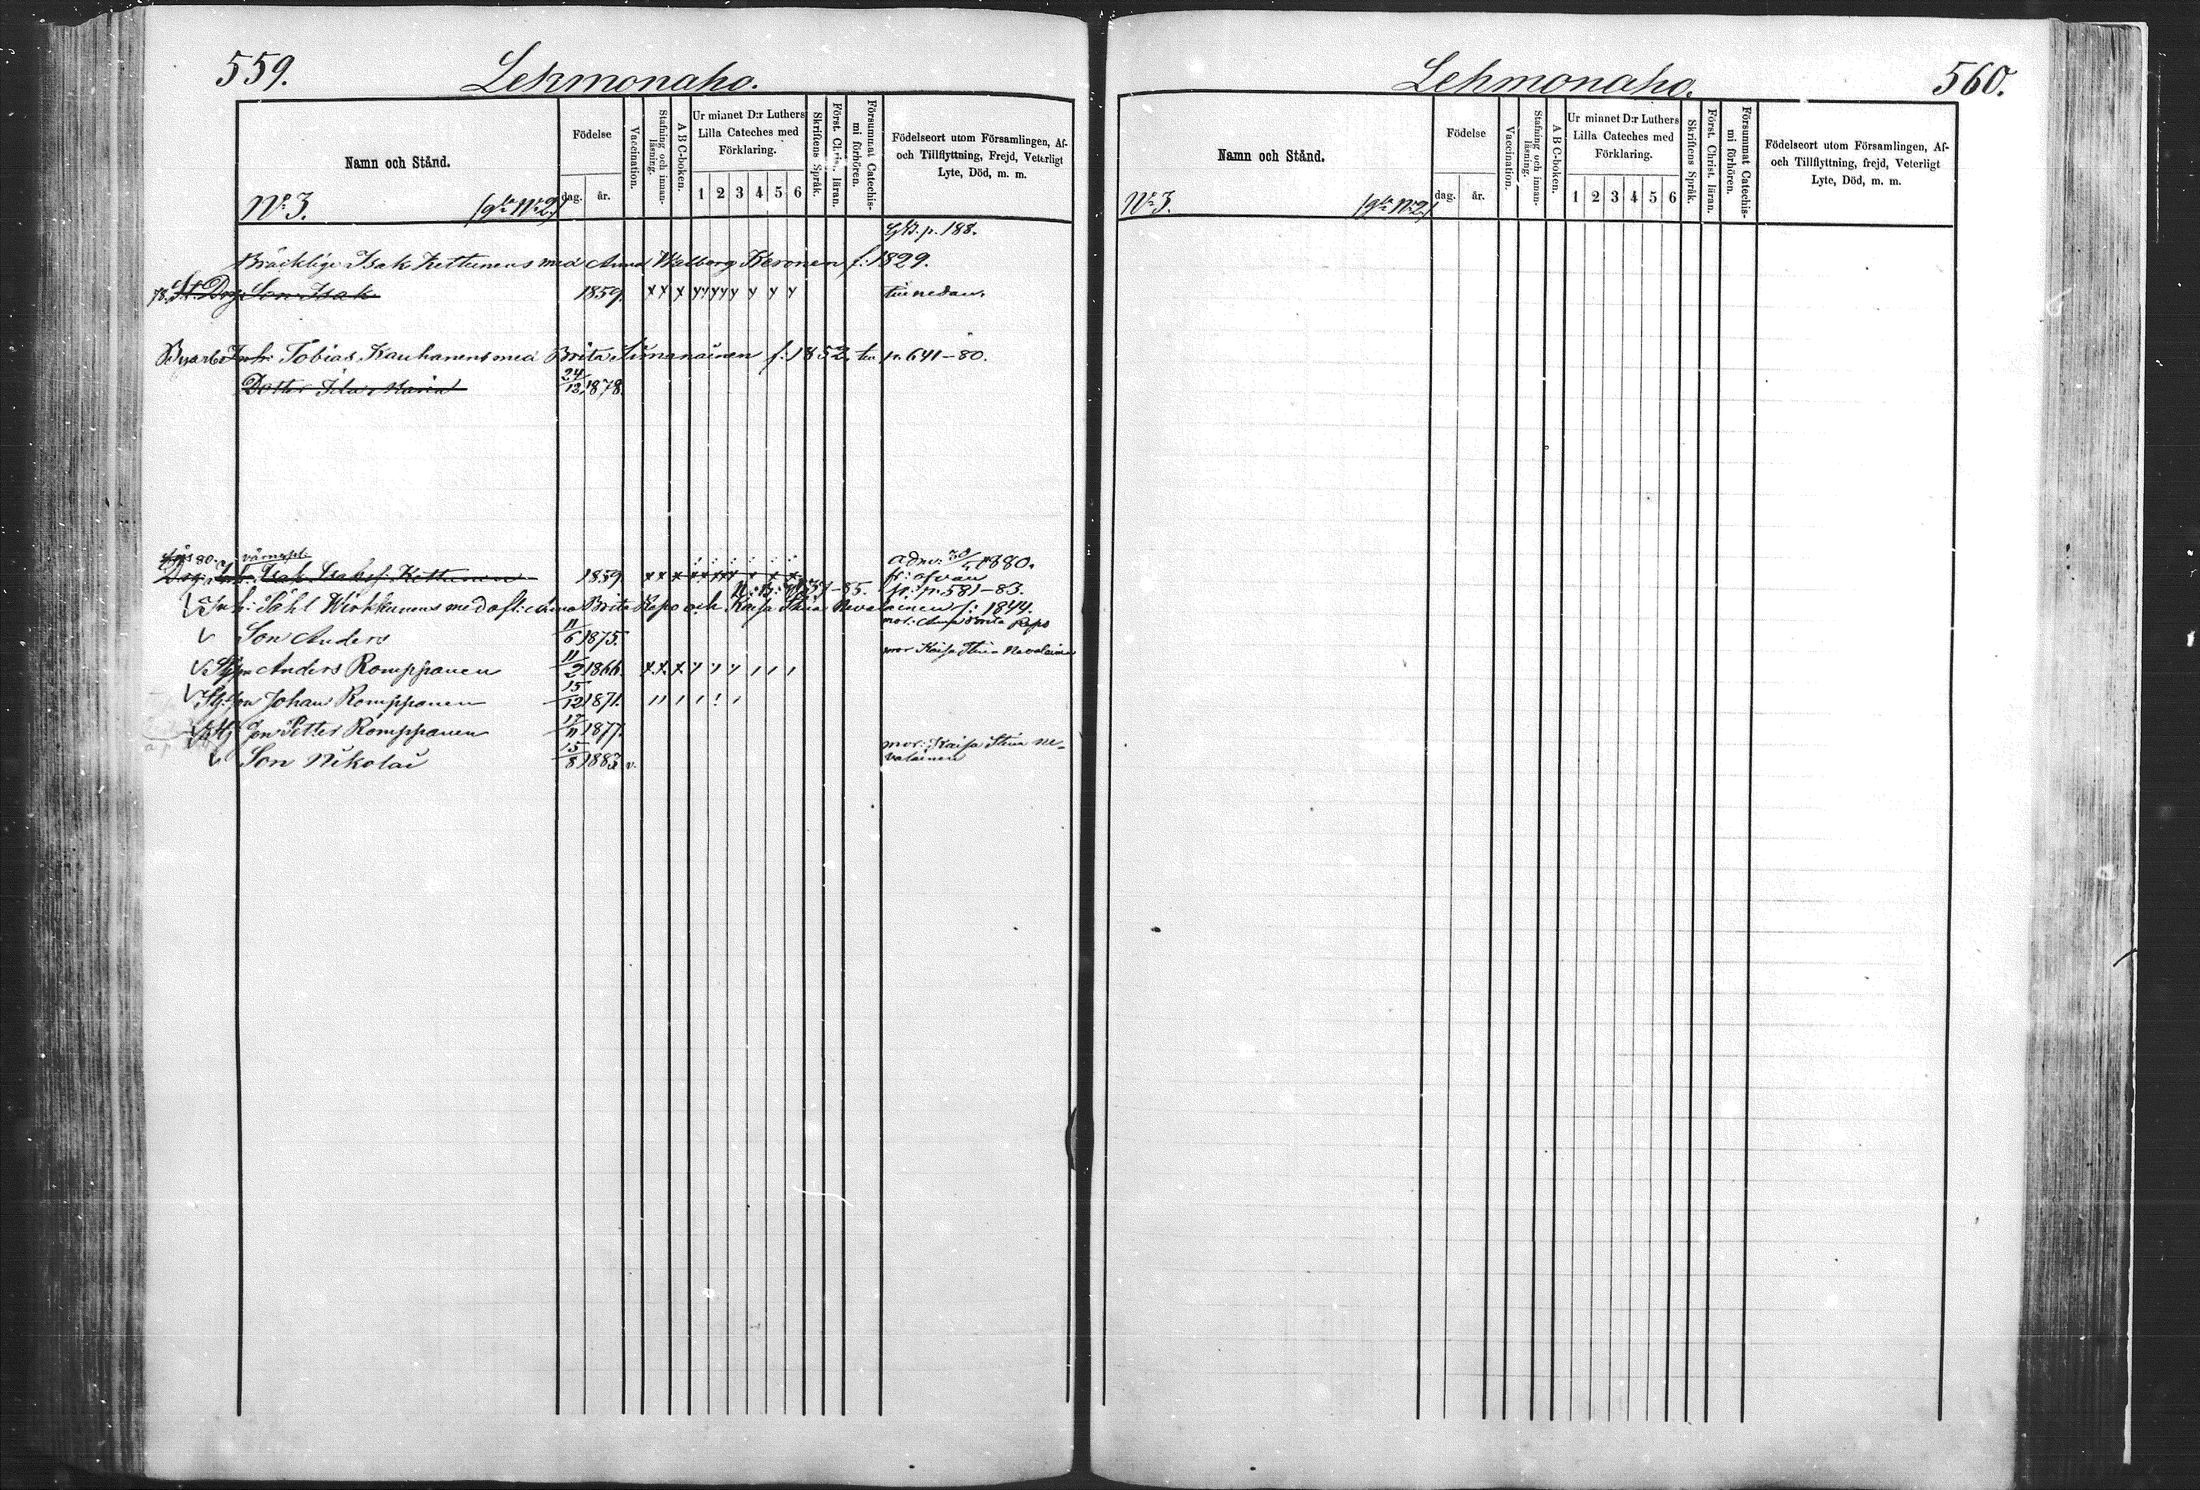 559.
Lehmonaho.
Namn och Stånd.
Födelse
dag. år.
Vaccination.
Stafning och innan-läsning.
A B C-boken.
Ur minnet D:r Luthers
Lilla Cateches med
Förklaring.
1 2 3 4 5 6
Skriftens Språk.
Först. Christ. läran.
Försummat Catechis-mi förhören.
Födelseort utom Församlingen, Af-
och Tillflyttning, Frejd, Veterligt
Lyte, Död, m. m.
No 3. (gla No 2)
p. 188.
Bräcklige Isak Kettunens med Anna Walborg Keronen f: 1829.
78. Drg. Son Isak 1859. nedan.
Inh: Tobias Kauhanens med Brita f: 1852. p. 641-80.
Dotter Maria 24/12 1878.
80. värnepl.
Isak Isaksf. Kettunen 1859 adm. 30/5 1880.
-85. fr. p. 581-83.
Inh: Påhl Wirkkunens med Anna Brita Repo och Kaisa Stina Nevalainen f: 1844.
Son Anders 11/6 1875. mor: Anna Brita Repo
Anders Romppanen 11/2 1866. mor Kaisa Stina Nevalainen
Johan Romppanen 15/12 1871.
Petter Romppanen 17/11 1877.
Son Nikolai 15/8 1883 v. mor: Kaisa Stina Ne-
valainen
Lehmonaho.
560.
Namn och Stånd.
Födelse
dag. år.
Vaccination.
Stafning och innan-läsning.
A B C-boken.
Ur minnet D:r Luthers
Lilla Cateches med
Förklaring.
1 2 3 4 5 6
Skriftens Språk.
Först. Christ. läran.
Försummat Catechis-mi förhören.
Födelseort utom Församlingen, Af-
och Tillflyttning, frejd, Veterligt
Lyte, Död, m. m.
No 3. (gla No 2)